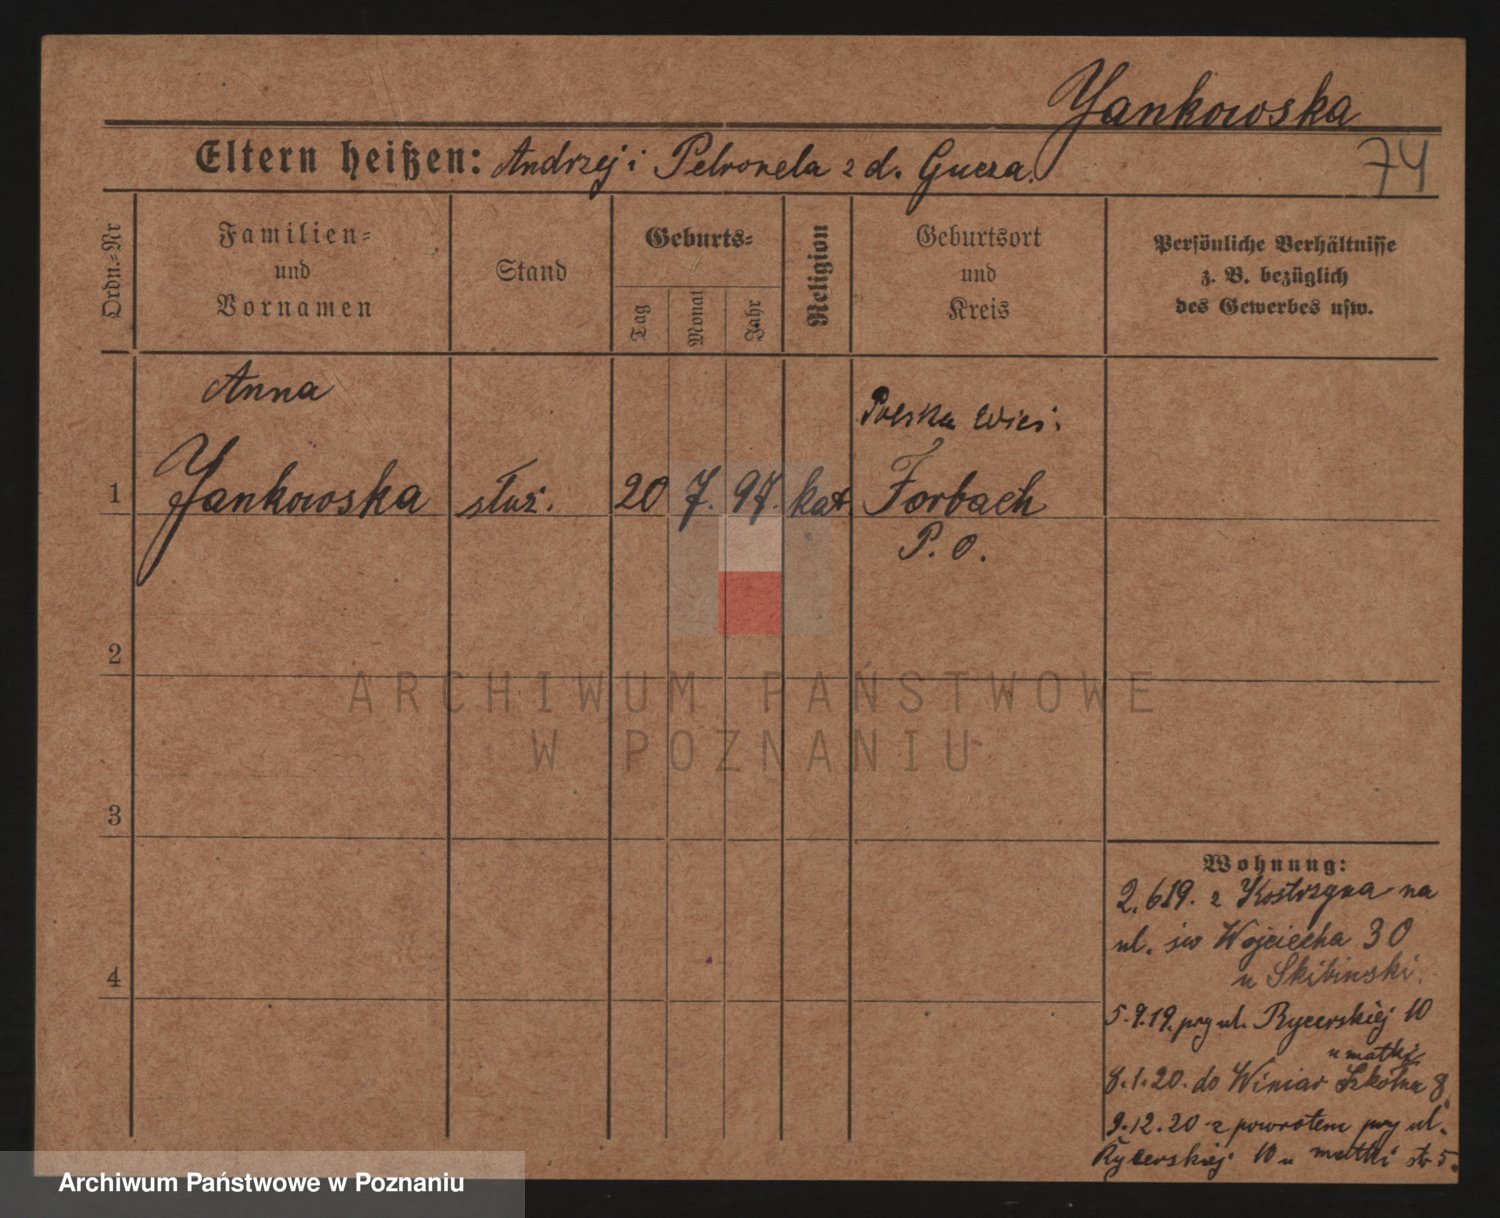 Yankowska
Eltern heißen: Andrzej i Petronela z d. Gucza.
74
Ordn.-Nr
Familien-
und
Vornamen
Stand
Geburts-
Tag
Monat
Jahr
Religion
Geburtsort
und
Kreis
Persönliche Verhältnisse
z. B. bezüglich
des Gewerbes usw.
Anna
Polska Wieś.
1 Yankowska służ. 20 7. 97. kat. Forbach
P. O.
2
3
4
Wohnung:
2.6 19. z Kostrzyna na
ul. św Wojciecha 30
u Skibinski.
5.9.19. przy ul. Rycerskiej 10
u matki
8.1.20. do Winiar Szkolna 8.
9.12.20 z powrotem przy ul.
Rycerskiej 10 u matki str 5.
ARCHIWUM PAŃSTWOWE
W POZNANIU
Archiwum Państwowe w Poznaniu